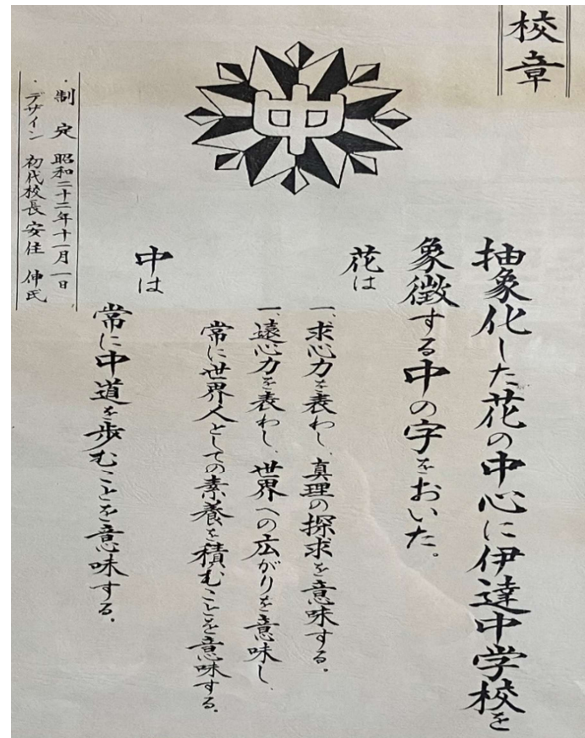 校章
中
抽象化した花の中心に伊達中学校を
象徴する中の字をおいた。
花は
一、求心力を表わし、真理の探求を意味する。
一、遠心力を表わし、世界への広がりを意味し、
常に世界人としての素養を積むことを意味する。
中は
常に中道を歩むことを意味する。
・制定 昭和二十二年十一月一日
・デザイン 初代校長 安住 伸氏